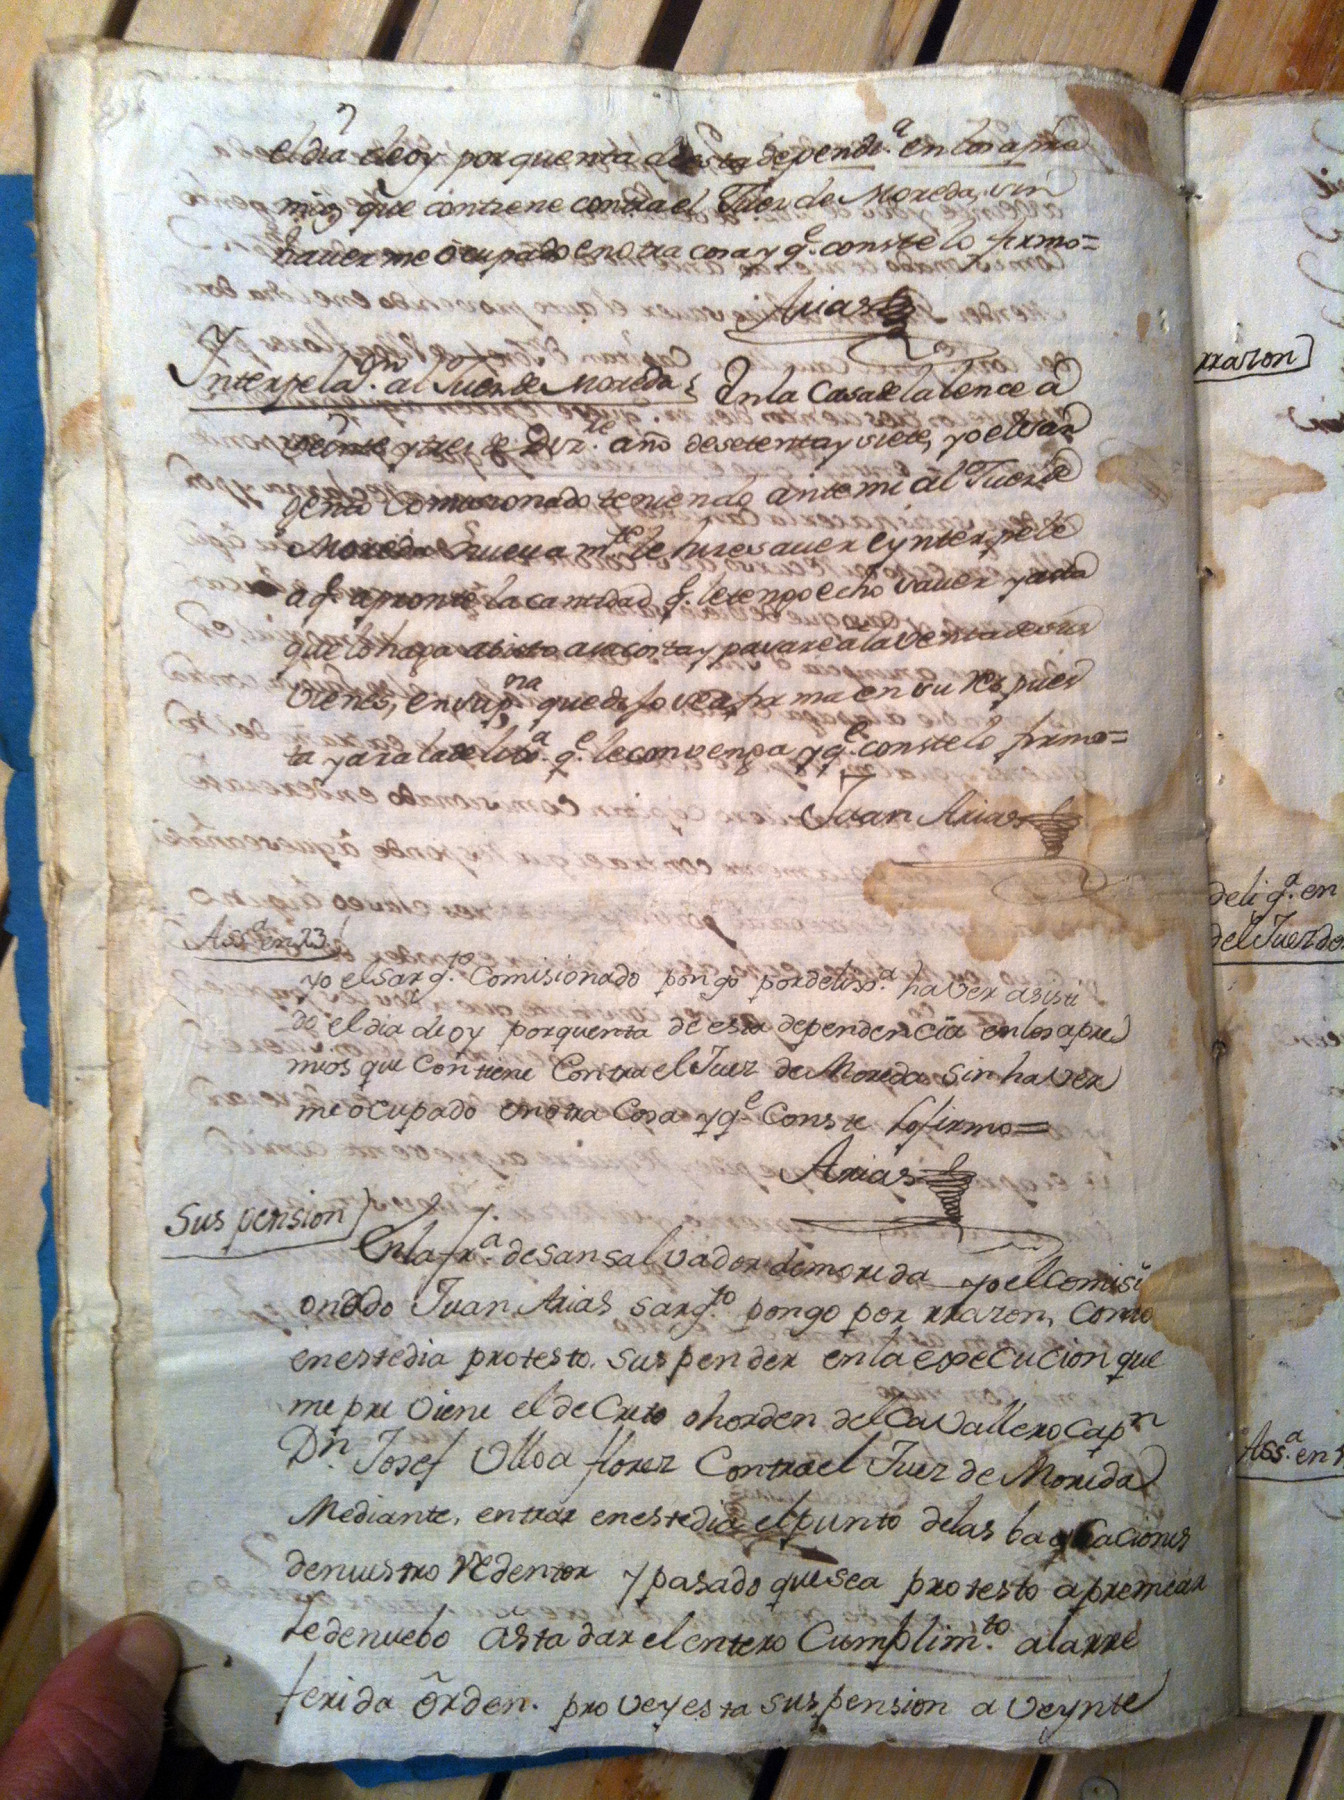 el dia de oy por quenta de esta depend.ª en los apre
mios que contiene contra el Juez de Moreda, sin
haverme ocupado en otra cosa y q.e conste lo firmo=
Arias
Ynterpela.on al Juez de Moreda En la Casa de la lence à
veinte y tres de Diz.re año de setenta y siete, yo el Sar
gento Comisionado teniendo ante mi al Juez de
Moreda nueva m.te le hize saver e ynterpele
a q.e apronte la cantidad q.e le tengo echo saver y asta
que lo haga asisto a su costa y pasare a la venta de sus
vienes, en su p.na que dijo vea firma en su Res pues
ta y a ra la de lix.ª q.e le convenga y q.e conste lo firmo=
Juan Arias
Ass.ª en 23.
yo el Sarg.to Comisionado pongo por delixs.ª haver asisti
do el dia de oy por quenta de esta dependencia en los apre
mios que Contiene Contra el Juez de Moreda sin haver
me ocupado en otra Cosa y q.e Conste lo firmo=
Arias
Suspension
En la fr.ª de San salvador de moreda yo el Comisi
onado Juan Arias sarg.to pongo por rrazon, Como
en este dia protesto. suspender en la execucion que
me pre viene el deCreto o horden del Cavallero Cap.n
D.n Josef Ulloa florez Contra el Juez de Moreda
Mediante, entrar en este dia el punto de las ba caciones
de nuestro Redentor y pasado que sea protesto apremiar
le denuebo asta dar el entero Cumplim.to a la rre
ferida òrden. provey esta suspension a veynte
rrazon
delig.ª en
del Juez de
Ass.ª en